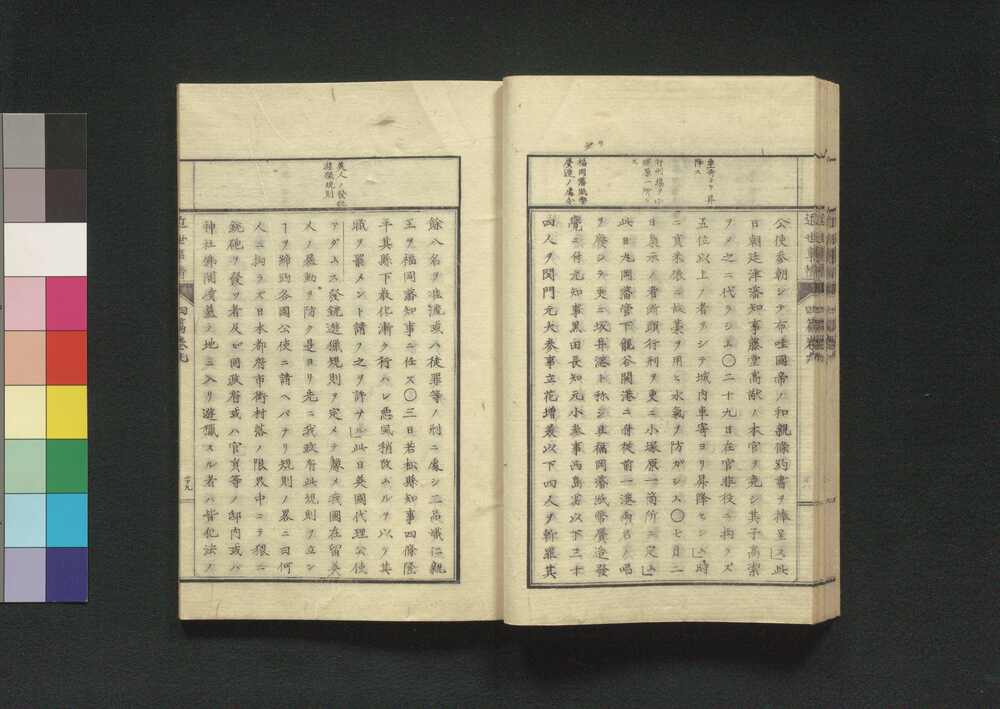 公使参朝シテ布哇國帝ノ和親條約書ヲ捧呈ス此
日朝廷津藩知事藤堂高猷ノ本官ヲ免シ其子高潔
ヲシテ之ニ代ラシム〇二十九日在官非役ニ拘ラズ
五位以上ノ者ヲシテ城内車寄ヨリ昇降セシム時
日梟示ノ者斬頭行刑ヲ更ニ小塚原一箇所ニ定ム
此日丸岡藩管下龍谷関港ニ
ヲ廢シテ更ニ坂井港ト称シ且福岡藩紙幣贋造發
覺ニ付元知事黒田長知元小参事西島某以下三十
四人ヲ閉門元大参事立花増美以下四人ヲ斬罪其
車寄ヨリ昇
降ス
福岡藩紙幣
贋造ノ處分
近世事情
四篇巻九
餘八名ヲ准流或ハ徒罪等ノ刑ニ處シ二品熾仁親
王ヲ福岡藩知事ニ任ス〇三日若松縣知事四條隆
平其縣下教化漸ク行ハレ悪風稍改ムルヲ以テ其
職ヲ罷メント請フ之ヲ許サル此日英國代理公使
アダムス發銃遊猟規則ヲ定メテ豫メ我國在留英
人ノ暴動ヲ防ク是ヨリ先ニ我政府此規則ヲ立ン
ヿヲ締約各國公使ニ請ヘバナリ規則ノ畧ニ曰何
人ニ拘ラズ日本都府市街村落ノ限界中ニテ猥ニ
銃砲ヲ發ツ者及ヒ同政府或ハ官員等ノ邸内或ハ
神社佛閣墳墓之地ニ入リ遊猟スル者ハ皆犯法ノ
英人ノ發銃
遊猟規則
近世事情
四篇巻九
廿九